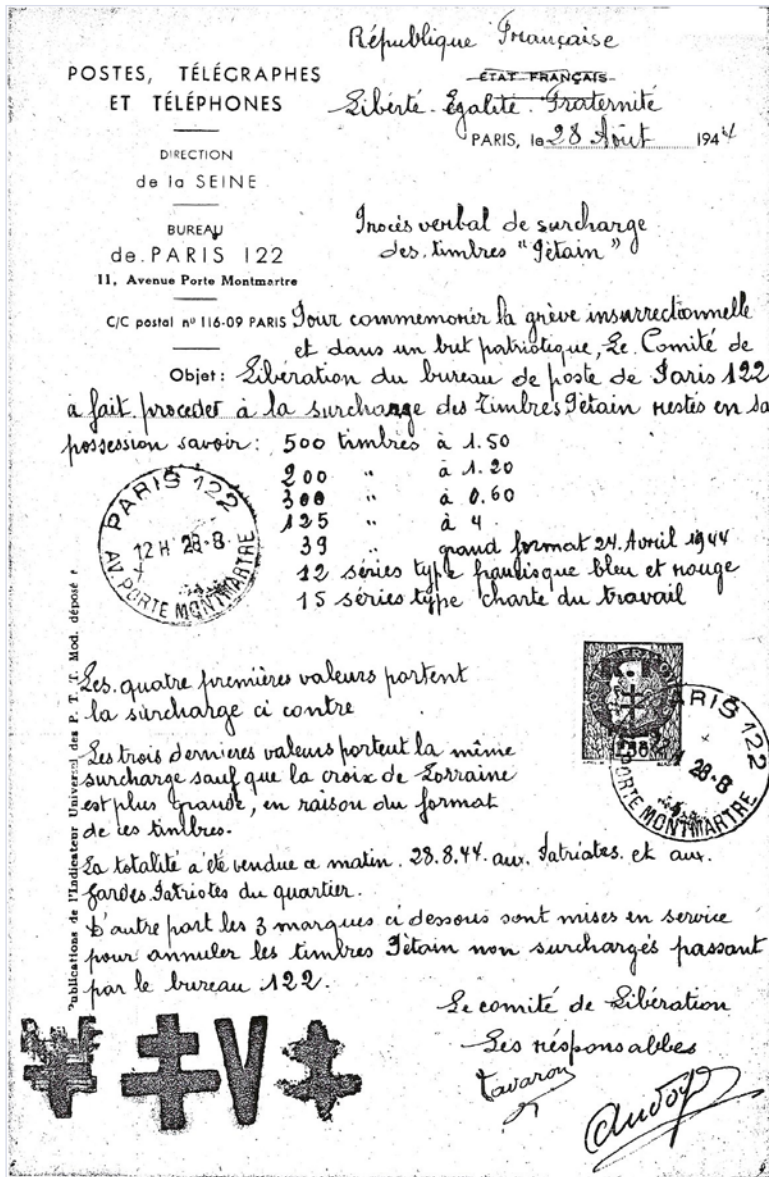 République Française
POSTES, TÉLÉGRAPHES
ET TÉLÉPHONES
ÉTAT FRANÇAIS
Liberté - Égalité - Fraternité
PARIS, le 28 Août 1944
DIRECTION
de la SEINE
BUREAU
de PARIS 122
11, Avenue Porte Montmartre
Procès verbal de surcharge
des timbres "Pétain"
C/C postal nº 116-09 PARIS
Pour commemorer la grève insurrectionnelle
et dans un but patriotique, Le Comité de
Objet : Libération du bureau de poste de Paris 122
a fait proceder à la surcharge des Timbres Pétain restés en sa
possession savoir : 500 timbres à 1.50
200 " à 1.20
300 " à 0.60
125 " à 4
39 " grand format 24 Avril 1944
12 séries type francisque bleu et rouge
15 séries type charte du travail
PARIS 122
12 H 28-8
AV. PORTE MONTMARTRE
Les quatre premières valeurs portent
la surcharge ci contre
PARIS 122
28-8
PORTE MONTMARTRE
Les trois dernieres valeurs portent la même
surcharge sauf que la croix de Lorraine
est plus grande, en raison du format
de ces timbres.
La totalité a été vendue ce matin 28.8.44 aux Patriotes et aux
Gardes Patriotes du quartier.
D'autre part les 3 marques ci dessous sont mises en service
pour annuler les timbres Pétain non surchargés passant
par le bureau 122.
Le comité de Libération
Les résponsables
Tavaron
Publications de l'Indicateur Universel des P. T. T. Mod. déposé
V